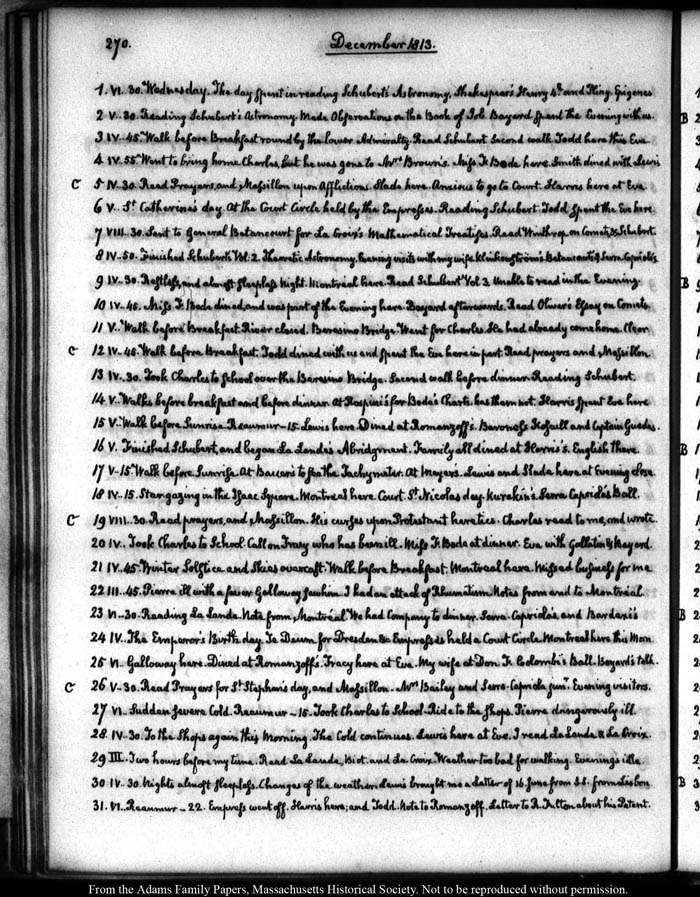 270.
December 1813.
1. VI. 30. Wednesday. The day spent in reading Schubert's Astronomy, Shakespear's Henry 4th and Pliny. Epigenes
2 V. 30. Reading Schubert's Astronomy. Made Observations on the Book of Job. Bayard spent the Evening with us.
3 IV. 45. Walk before Breakfast round by the lower Admiralty. Read Schubert. Second walk. Todd here this Eve
4 IV. 55. Went to bring home Charles, but he was gone to Mrs Brown's. Miss K Bode here. Smith dined with Lewis
C 5 IV. 30. Read Prayers, and Massillon upon Afflictions. Slade here. Anxious to go to Court. Harris here at Eve
6 V. St Catherine's day. At the Court Circle held by the Empresses. Reading Schubert. Todd spent the Eve here.
7 VIII. 30. Sent to General Betancourt for La Croix's Mathematical Treatises. Read Winthrop on Comets, & Schubert.
8 IV. 50. Finished Schubert's Vol. 2. Theoretic Astronomy. Evening visits with my wife. Betancourt's & Serra Capriola's.
9 IV. 30. Restless, and almost sleepless Night. Montreal here. Read Schubert Vol 3. Unable to read in the Evening.
10 IV. 45. Miss K Bode dined, and was part of the Evening here. Bayard afterwards. Read Oliver's Essay on Comets.
11 V. Walk before Breakfast. River closed. Beresina Bridge. Went for Charles. He had already come home. Clear
C 12 IV. 45. Walk before Breakfast. Todd dined with us and spent the Eve here in part. Read prayers and Massillon.
13 IV. 30. Took Charles to School over the Beresina Bridge. Second walk before dinner. Reading Schubert.
14 V. Walks before breakfast and before dinner. At Raspini's for Bode's Charts. has them not. Harris spent Eve here
15 V. Walk before Sunrise. Reaumur - 15. Lewis here. Dined at Romanzoff's. Baroness and Captain Guedes.
16 V. Finished Schubert, and began La Lande's Abridgment. Family all dined at Harris's. English there
17 V. 15. Walk before Sunrise. At to see the Tachypater. At Meyer's. Lewis and Slade here at Evening close
18 IV. 15. Star gazing in the Isaac Square. Montreal here. Court. St Nicolas day. Kurakin's. Serra Capriola's Ball.
C 19 VIII. 30. Read prayers, and Massillon. His curses upon Protestant heretics. Charles read to me, and wrote.
20 IV. Took Charles to School. Call on Tracy who has been ill. Miss K Bode at dinner. Eve with Gallatin & Bayard.
21 IV. 45. Winter Solstice and Skies overcast. Walk before Breakfast. Montreal here. Missed business for me
22 III. 45. Pierre ill with a fever. Galloway I had an attack of Rheumatism. Notes from and to Montreal.
23 VI. 30. Reading La Lande. Note from Montreal. We had Company to dinner. Serra-Capriola's and Bardaxi's
24 IV. The Emperor's Birth day. Te Deum for Dresden &c. Empresses held a Court Circle. Montreal here this Morn.
25 VI. Galloway here. Dined at Romanzoff's. Tracy here at Eve. My wife at Don F. Colombi's Ball. Bayard's talk.
C 26 V. 30. Read Prayers for St Stephen's day, and Massillon. Mrs Bailey and Serra-Capriola junr. Evening visitors.
27 VI. Sudden severe Cold. Reaumur - 15. Took Charles to School. Ride to the shops. Pierre dangerously ill.
28. IV. 30. To the Shops again this Morning. The Cold continues. Lewis here at Eve. I read La Lande & La Croix.
29 III. Two hours before my time. Read La Lande, Biot, and La Croix. Weather too bad for walking. Evenings idle.
30 IV. 30. Nights almost sleepless. Changes of the weather. Lewis brought me a Letter of 16 June from S.S. from Lisbon
31. VI. Reaumur - 22. Empress went off. Harris here; and Todd. Note to Romanzoff. Letter to R. Fulton about his Patent.
From the Adams Family Papers, Massachusetts Historical Society. Not to be reproduced without permission.